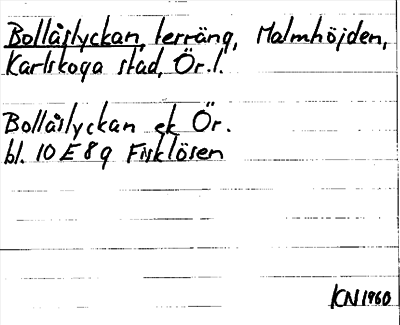 Bollåslyckan, terräng, Malmhöjden,
Karlskoga stad, Ör. l.
Bollåslyckan ek Ör.
bl. 10 E 8 g Fisklösen
KN 1960